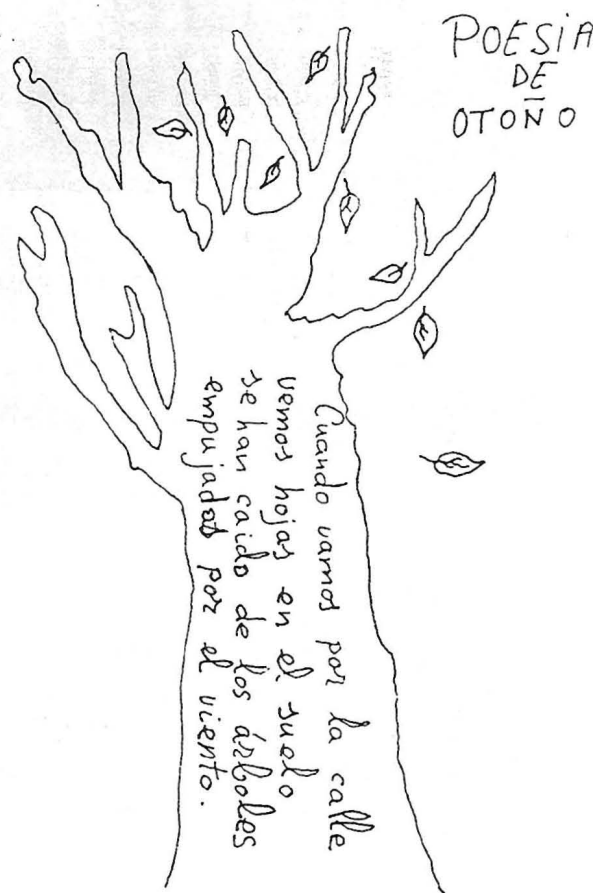 POESIA
DE
OTOÑO
Cuando vamos por la calle
vemos hojas en el suelo
se han caido de los árboles
empujadas por el viento.